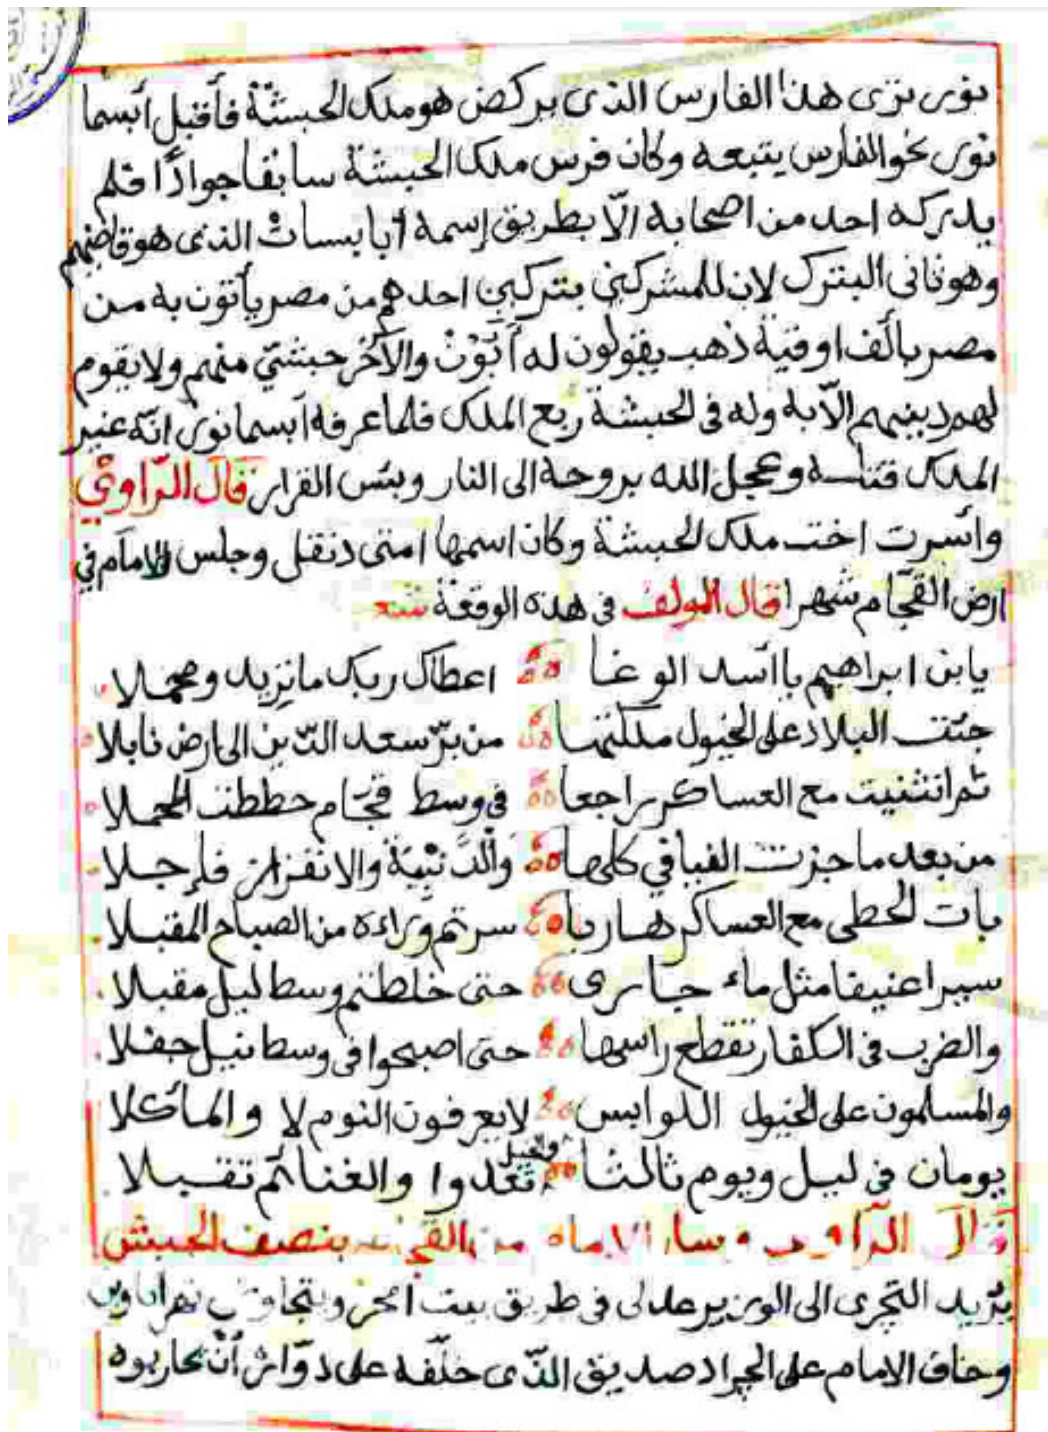 نورى ترى هذا الفارس الذى يركض هو ملك الحبشة فأقبل أبسما
نورى نحو الفارس يتبعه وكان فرس ملك الحبشة سابقا جوادًا فلم
يدركه احد من اصحابه الّا بطريق إسمه أبا بسات الذى هو قاضيهم
وهو ثانى البترك لان للمشركين بتركين احدهم من مصر يأتون به من
مصر بألف اوقية ذهب يقولون له أَبَوْنْ والآخر حبشيّ منهم ولا يقوم
لهم دينهم الّا به وله فى الحبشة ربع الملك فلما عرفه أبسما نورى انّه غير
الملك قتله وعجل الله بروحه الى النار وبئس القرار قال الرّاوي
وأسرت اخت ملك الحبشة وكان اسمها امتى دنقل وجلس الامام في
ارض القجّام شهرا قال المولف فى هذه الوقعة شعر
يابن ابراهيم يا أسد الوغا اعطاك ربك ما تريد ومجملا
جئت البلاد على الخيول ملكتها من برّ سعد الدّين الى ارض نابلا
ثم انثنيت مع العساكر راجعا فى وسط قجّام حططت المحملا
من بعد ما جزت الفيافي كلها والدَّنْبِيَة والانفراز فارجلا
بات الحطى مع العساكر هاربا سرتم وراءه من الصباح المقبلا
سيرا عنيفا مثل ماء جارى حتى خلطتم وسط ليل مقبلا
والضرب فى الكفار تقطع راسها حتى اصبحوا فى وسط نيل جفلا
والمسلمون على الخيول اللوابس لا يعرفون النوم لا والمأكلا
يومان فى ليل ويوم ثالثا تغدوا والغنائم تقبلا
والقيل
قال الرّاوى وسار الامام من القجّام بنصف الحبش
يريد التجرى الى الوزير عدلى فى طريق بيت أمحر ويتجاوز نهر
وخاف الامام على الجراد صديق الذّى خلّفه على دوّار أنْ يحاربوه